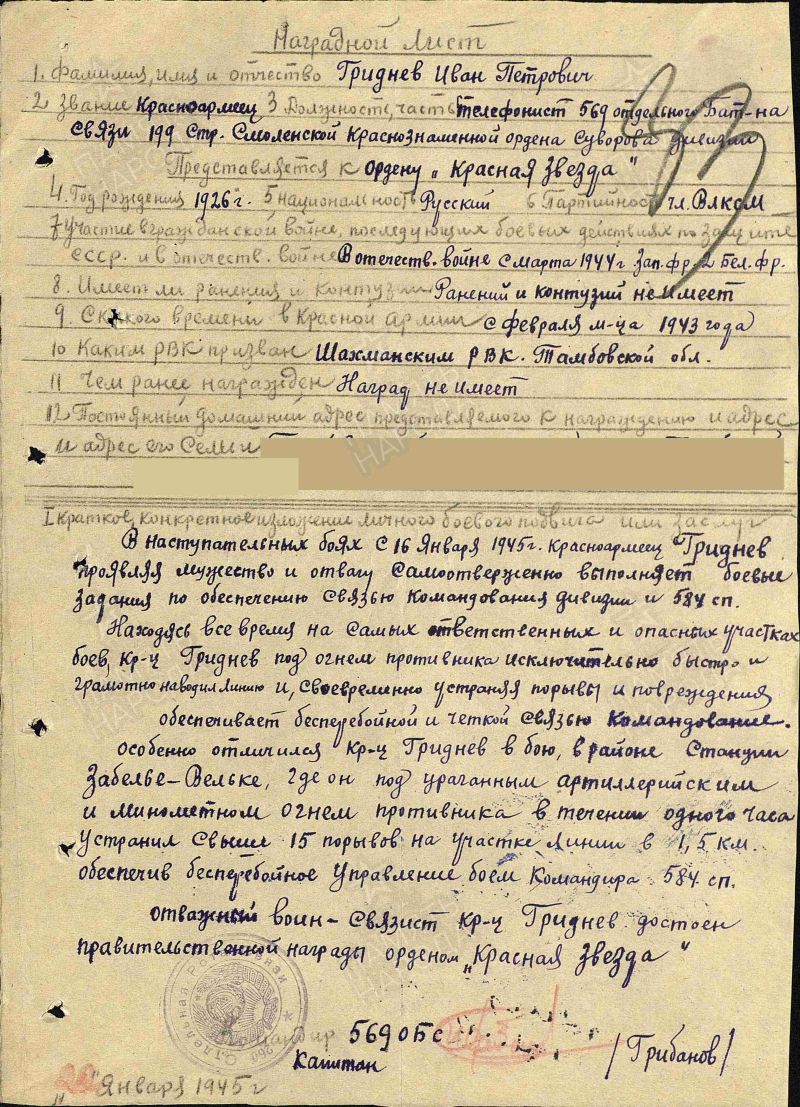 Наградной Лист
1. Фамилия, имя и отчество Гриднев Иван Петрович
2 Звание Красноармеец 3 Должность, часть телефонист 569 отдельного Бат-на
Связи 199 Стр. Смоленской Краснознаменной ордена Суворова дивизии
Представляется к ордену „Красная Звезда"
4. Год рождения 1926 г. 5 национальность Русский 6 Партийность чл. ВЛКСМ
7 Участие в гражданской войне, последующих боевых действиях по защите
СССР и в отечеств. войне В отечеств. войне с марта 1944 г Зап. фр. 2 Бел. фр.
8. Имеет ли ранения и контузии Ранений и контузий не имеет
9. С какого времени в Красной армии с февраля м-ца 1943 года
10 Каким РВК призван Шахманским РВК. Тамбовской обл.
11 Чем ранее награжден Наград не имеет
12 Постоянный домашний адрес представляемого к награждению и адрес
и адрес его Семьи
I краткое, конкретное изложение личного боевого подвига или заслуг
В наступательных боях с 16 Января 1945 г. Красноармеец Гриднев
проявляя мужество и отвагу самоотверженно выполняет боевые
задания по обеспечению связью командования дивизии и 584 сп.
Находясь все время на самых ответственных и опасных участках
боев, кр-ц Гриднев под огнем противника исключительно быстро и
грамотно наводил линию и, своевременно устраняя порывы и повреждения
обеспечивает бесперебойной и четкой связью командование.
особенно отличился кр-ц Гриднев в бою, в районе Станции
Забелье-Вельке, где он под ураганным артиллерийским
и минометном огнем противника в течении одного часа
устранил свыше 15 порывов на участке линии в 1,5 км.
обеспечив бесперебойное управление боем командира 584 сп.
отважный воин-связист кр-ц Гриднев достоен
правительственной награды орденом „Красная Звезда"
Командир 569 ОБС
Капитан /Грибанов/
Января 1945 г